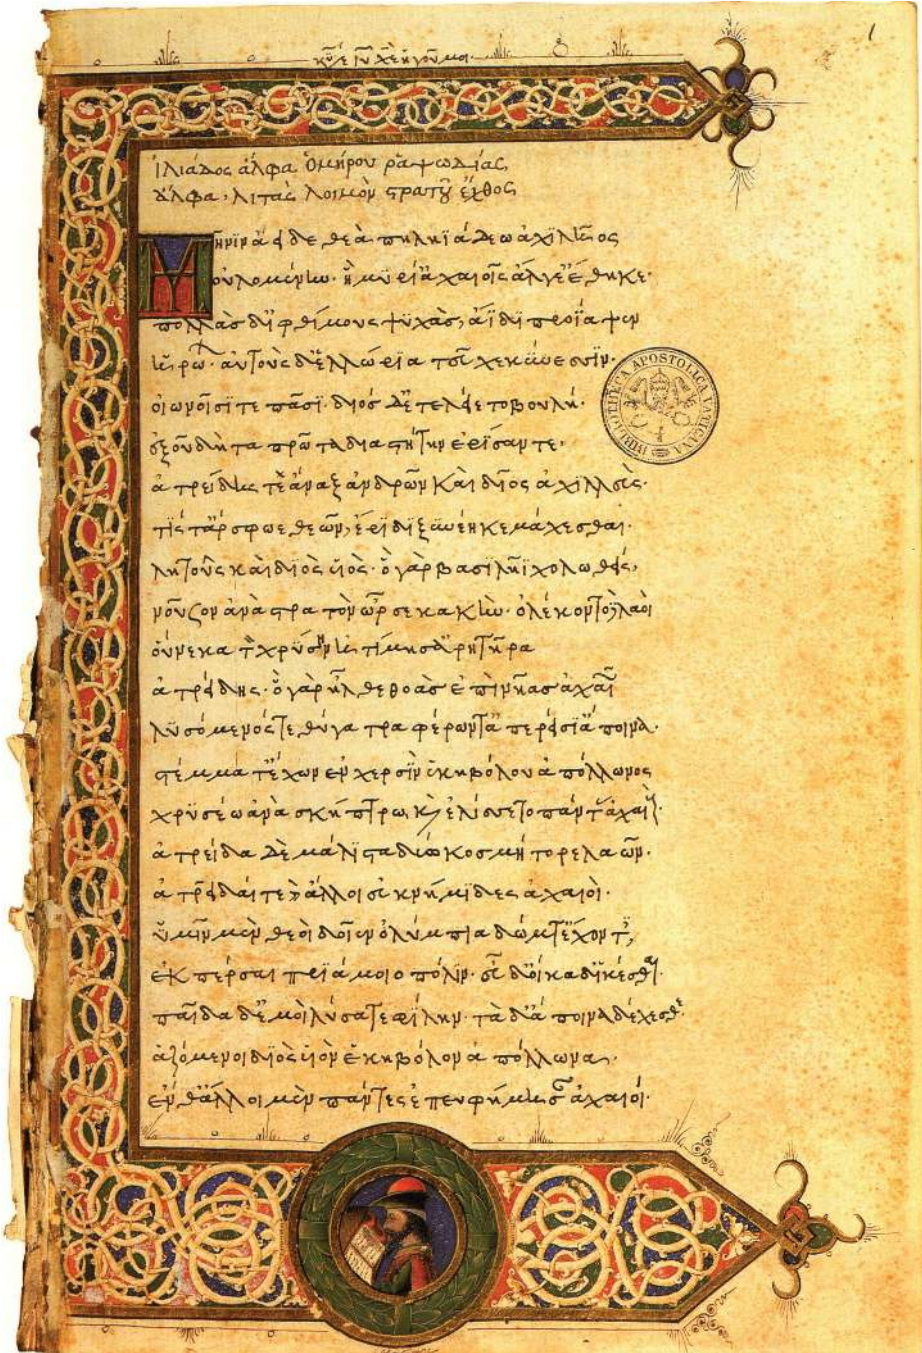 κύριε ἰησοῦ χριστὲ ἡγοῦ μοι.
1
ἰλιάδος ἄλφα ὁμήρου ῥαψωδίας,
ἄλφα, λιτὰς λοιμὸν στρατοῦ ἔχθος
Μῆνιν ἄειδε θεὰ πηληϊάδεω ἀχιλῆος
οὐλομένην· ἣ μυρί' ἀχαιοῖς ἄλγε' ἔθηκε·
πολλὰς δ' ἰφθίμους ψυχὰς, ἄϊδι προΐαψεν
ἡρώων· αὐτοὺς δ' ἑλλώρια τεῦχε κύνεσσιν·
οἰωνοῖσί τε πᾶσι· διὸς δ' ἐτελείετο βουλή·
ἐξ οὗ δὴ τὰ πρῶτα διαστήτην ἐρίσαντε,
ἀτρείδης τε ἄναξ ἀνδρῶν καὶ δῖος ἀχιλλεὺς·
τίς τ' ἄρ σφωε θεῶν, ἔριδι ξυνέηκε μάχεσθαι·
λητοῦς καὶ διὸς υἱὸς· ὁ γὰρ βασιλῆϊ χολωθείς,
νοῦσον ἀνὰ στρατὸν ὦρσε κακὴν· ὀλέκοντο λαοὶ
οὕνεκα τὸν χρύσην ἠτίμησ' ἀρητῆρα
ἀτρείδης· ὁ γὰρ ἦλθε θοὰς ἐπὶ νῆας ἀχαιῶν
λυσόμενός τε θύγατρα φέρων τ' ἀπερείσι' ἄποινα·
στέμμα τ' ἔχων ἐν χερσὶν ἑκηβόλου ἀπόλλωνος
χρυσέω ἀνὰ σκήπτρω, καὶ ἐλίσσετο πάντας ἀχαιούς·
ἀτρείδα δὲ μάλιστα δύω κοσμήτορε λαῶν·
ἀτρεῖδαί τε καὶ ἄλλοι ἐϋκνήμιδες ἀχαιοὶ·
ὑμῖν μὲν θεοὶ δοῖεν ὀλύμπια δώματ' ἔχοντες,
ἐκπέρσαι πριάμοιο πόλιν· εὖ δ' οἴκαδ' ἱκέσθαι·
παῖδα δέ μοι λύσατε φίλην· τὰ δ' ἄποινα δέχεσθε·
ἁζόμενοι διὸς υἱὸν ἑκηβόλον ἀπόλλωνα,·
ἔνθ' ἄλλοι μὲν πάντες ἐπευφήμησαν ἀχαιοί·
BIBLIOTHECA APOSTOLICA VATICANA